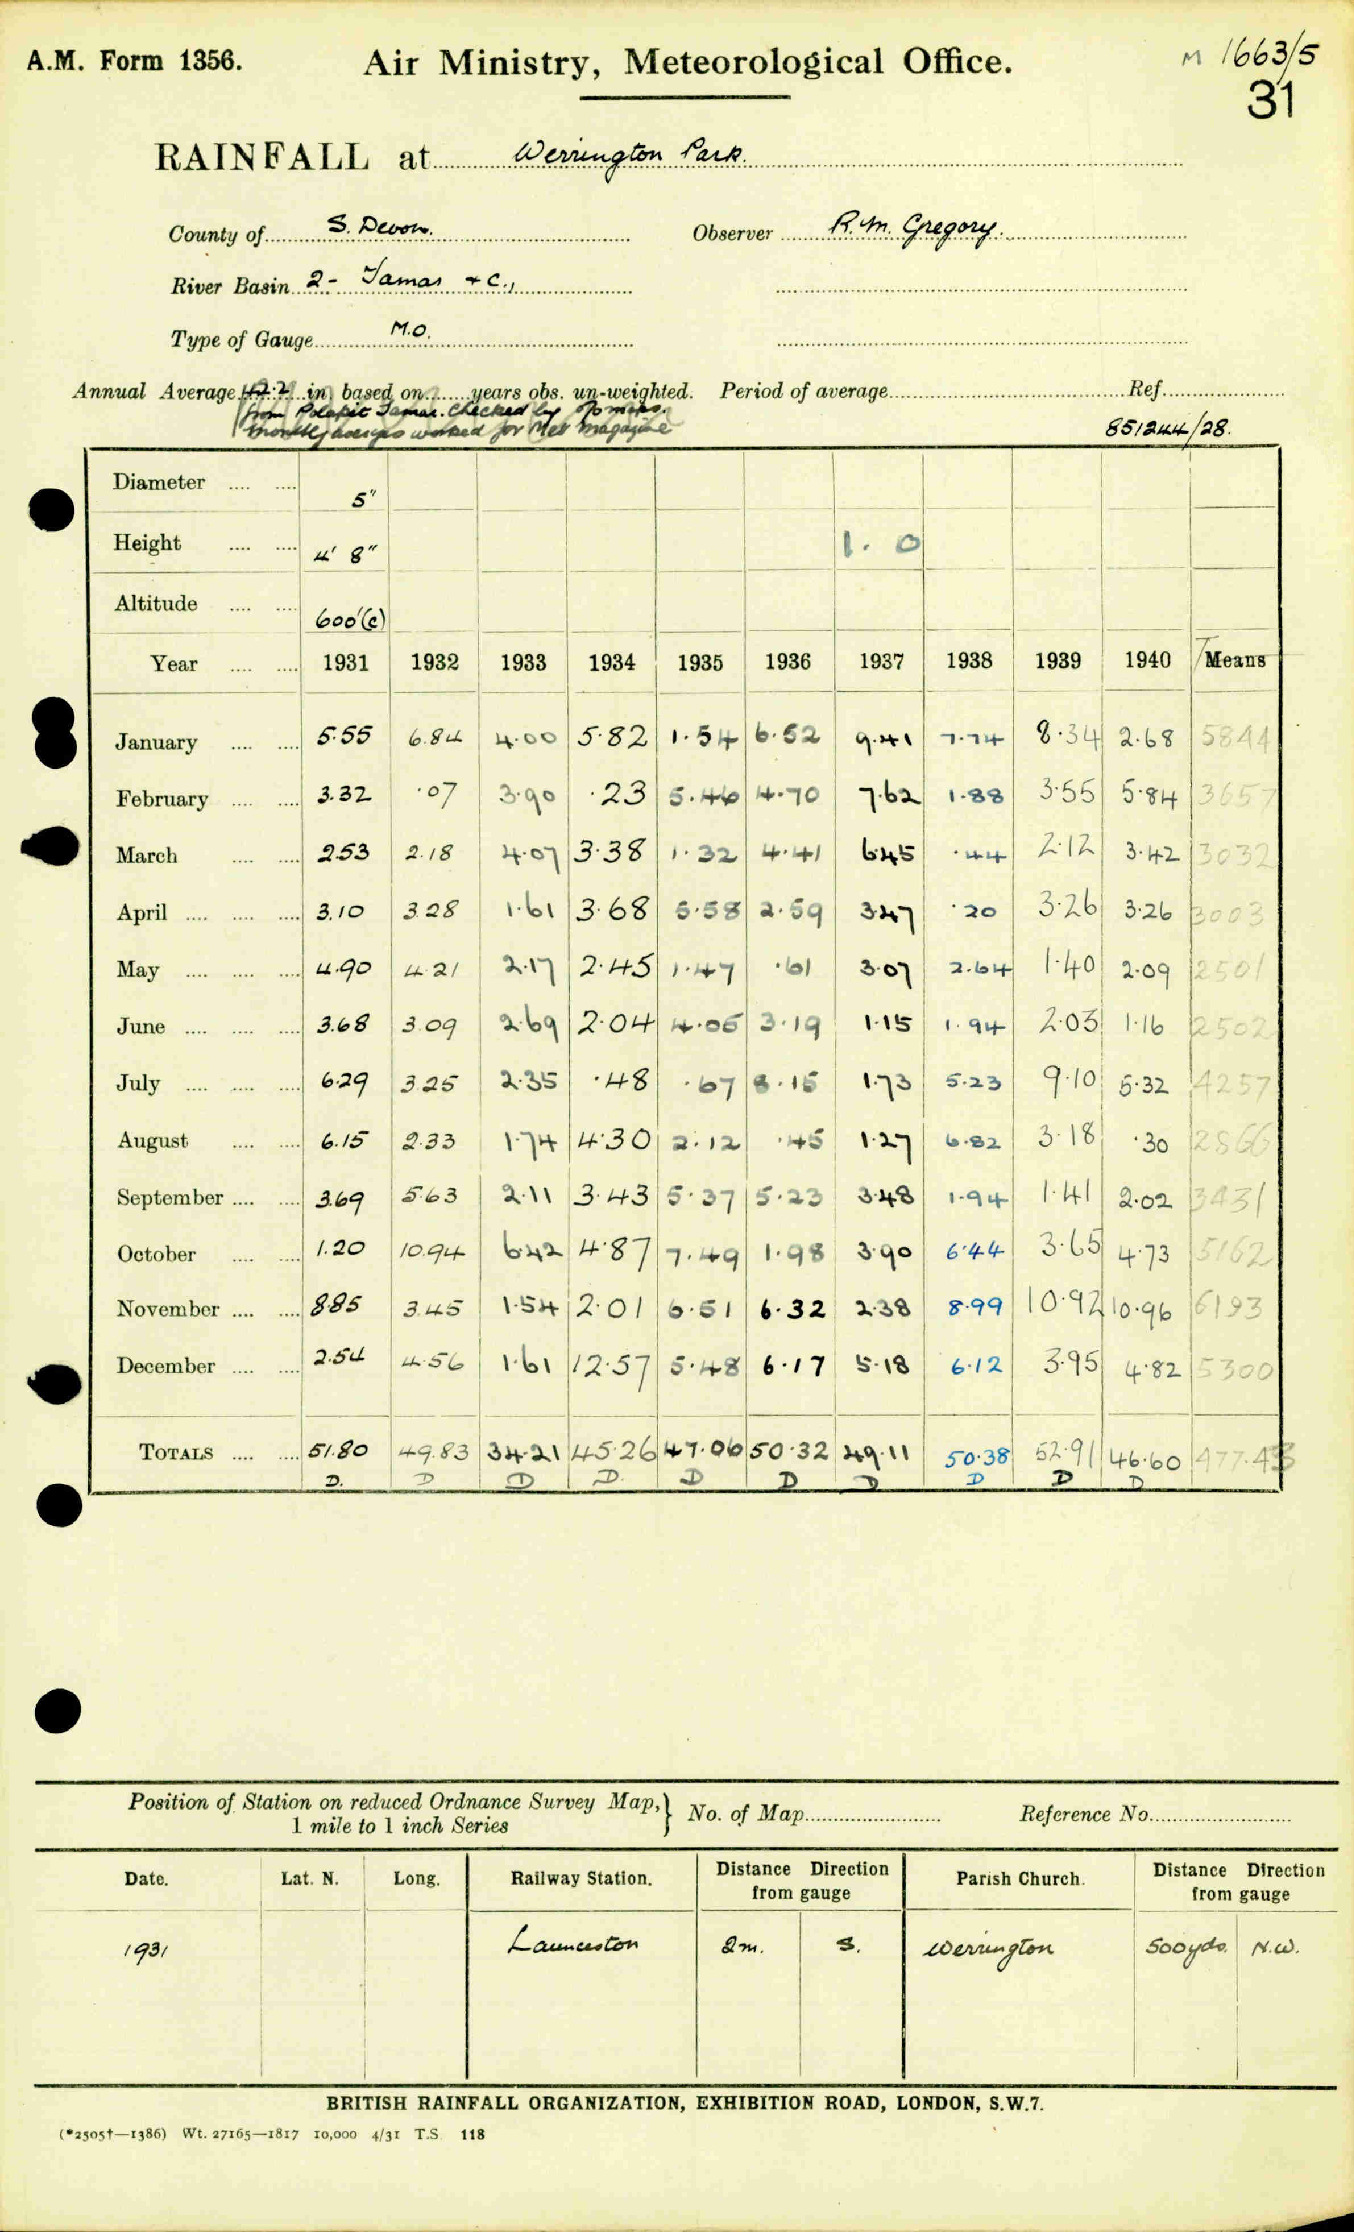 A.M. Form 1356.
Air Ministry, Meteorological Office.
M 1663/5
31
RAINFALL at Werrington Park.
County of S. Devon. Observer R.M. Gregory.
River Basin 2- Tamar &c.,
Type of Gauge M.O.
Annual Average 42.2 in. based on years obs. un-weighted. Period of average Ref.
from Polapit Tamar. Checked by maps.
monthly averages worked for Met Magazine
851244/28.
Diameter 5"
Height 4' 8" 1. 0
Altitude 600'(c)
Year 1931 1932 1933 1934 1935 1936 1937 1938 1939 1940 T Means
January 5.55 6.84 4.00 5.82 1.54 6.52 9.41 7.74 8.34 2.68 5844
February 3.32 .07 3.90 .23 5.46 4.70 7.62 1.88 3.55 5.84 3657
March 2.53 2.18 4.07 3.38 1.32 4.41 6.45 .44 2.12 3.42 3032
April 3.10 3.28 1.61 3.68 5.58 2.59 3.47 .20 3.26 3.26 3003
May 4.90 4.21 2.17 2.45 1.47 .61 3.07 2.64 1.40 2.09 2501
June 3.68 3.09 2.69 2.04 4.05 3.19 1.15 1.94 2.03 1.16 2502
July 6.29 3.25 2.35 .48 .67 8.15 1.73 5.23 9.10 5.32 4257
August 6.15 2.33 1.74 4.30 2.12 .45 1.27 6.82 3.18 .30 2866
September 3.69 5.63 2.11 3.43 5.37 5.23 3.48 1.94 1.41 2.02 3431
October 1.20 10.94 6.42 4.87 7.49 1.98 3.90 6.44 3.65 4.73 5162
November 8.85 3.45 1.54 2.01 6.51 6.32 2.38 8.99 10.92 10.96 6193
December 2.54 4.56 1.61 12.57 5.48 6.17 5.18 6.12 3.95 4.82 5300
TOTALS 51.80 49.83 34.21 45.26 47.06 50.32 49.11 50.38 52.91 46.60 477.43
D. D D D. D D D D D D
Position of Station on reduced Ordnance Survey Map,} No. of Map Reference No.
1 mile to 1 inch Series
Date. Lat. N. Long. Railway Station. Distance Direction from gauge Parish Church. Distance Direction from gauge
1931 Launceston 2m. S. Werrington 500yds. N.W.
BRITISH RAINFALL ORGANIZATION, EXHIBITION ROAD, LONDON, S.W.7.
(*2505†—1386) Wt. 27165—1817 10,000 4/31 T.S. 118